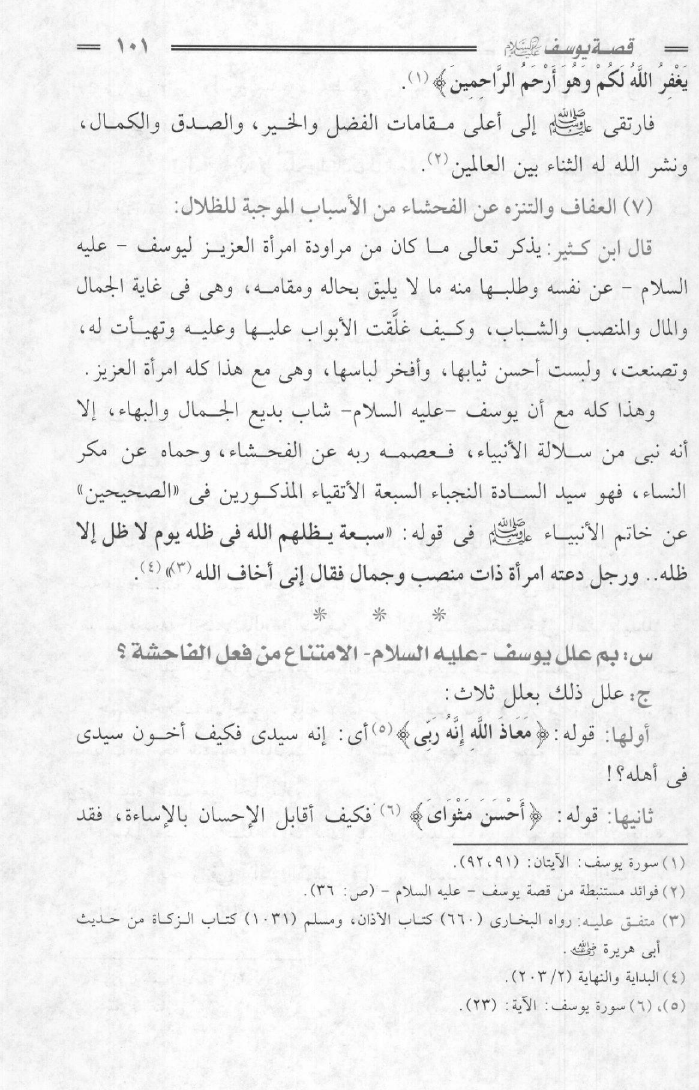 قصة يوسف عليه السلام ١٠١
يَغْفِرُ اللَّهُ لَكُمْ وَهُوَ أَرْحَمُ الرَّاحِمِينَ﴾(١).
فارتقى ﷺ إلى أعلى مقامات الفضل والخير، والصدق والكمال،
ونشر الله له الثناء بين العالمين(٢).
(٧) العفاف والتنزه عن الفحشاء من الأسباب الموجبة للظلال:
قال ابن كثير: يذكر تعالى ما كان من مراودة امرأة العزيز ليوسف - عليه
السلام - عن نفسه وطلبها منه ما لا يليق بحاله ومقامه، وهى فى غاية الجمال
والمال والمنصب والشباب، وكيف غلَّقت الأبواب عليها وعليه وتهيأت له،
وتصنعت، ولبست أحسن ثيابها، وأفخر لباسها، وهى مع هذا كله امرأة العزيز.
وهذا كله مع أن يوسف -عليه السلام- شاب بديع الجمال والبهاء، إلا
أنه نبى من سلالة الأنبياء، فعصمه ربه عن الفحشاء، وحماه عن مكر
النساء، فهو سيد السادة النجباء السبعة الأتقياء المذكورين فى «الصحيحين»
عن خاتم الأنبياء ﷺ فى قوله: «سبعة يظلهم الله فى ظله يوم لا ظل إلا
ظله.. ورجل دعته امرأة ذات منصب وجمال فقال إنى أخاف الله(٣)»(٤).
* * *
س: بم علل يوسف -عليه السلام- الامتناع من فعل الفاحشة؟
ج: علل ذلك بعلل ثلاث:
أولها: قوله: ﴿مَعَاذَ اللَّهِ إِنَّهُ رَبِّى﴾(٥) أى: إنه سيدى فكيف أخون سيدى
فى أهله؟!
ثانيها: قوله: ﴿أَحْسَنَ مَثْوَاىَ﴾(٦) فكيف أقابل الإحسان بالإساءة، فقد
(١) سورة يوسف: الآيتان: (٩١، ٩٢).
(٢) فوائد مستنبطة من قصة يوسف - عليه السلام - (ص: ٣٦).
(٣) متفق عليه: رواه البخارى (٦٦٠) كتاب الأذان، ومسلم (١٠٣١) كتاب الزكاة من حديث
أبى هريرة رضي الله عنه.
(٤) البداية والنهاية (٢/ ٢٠٣).
(٥)، (٦) سورة يوسف: الآية: (٢٣).